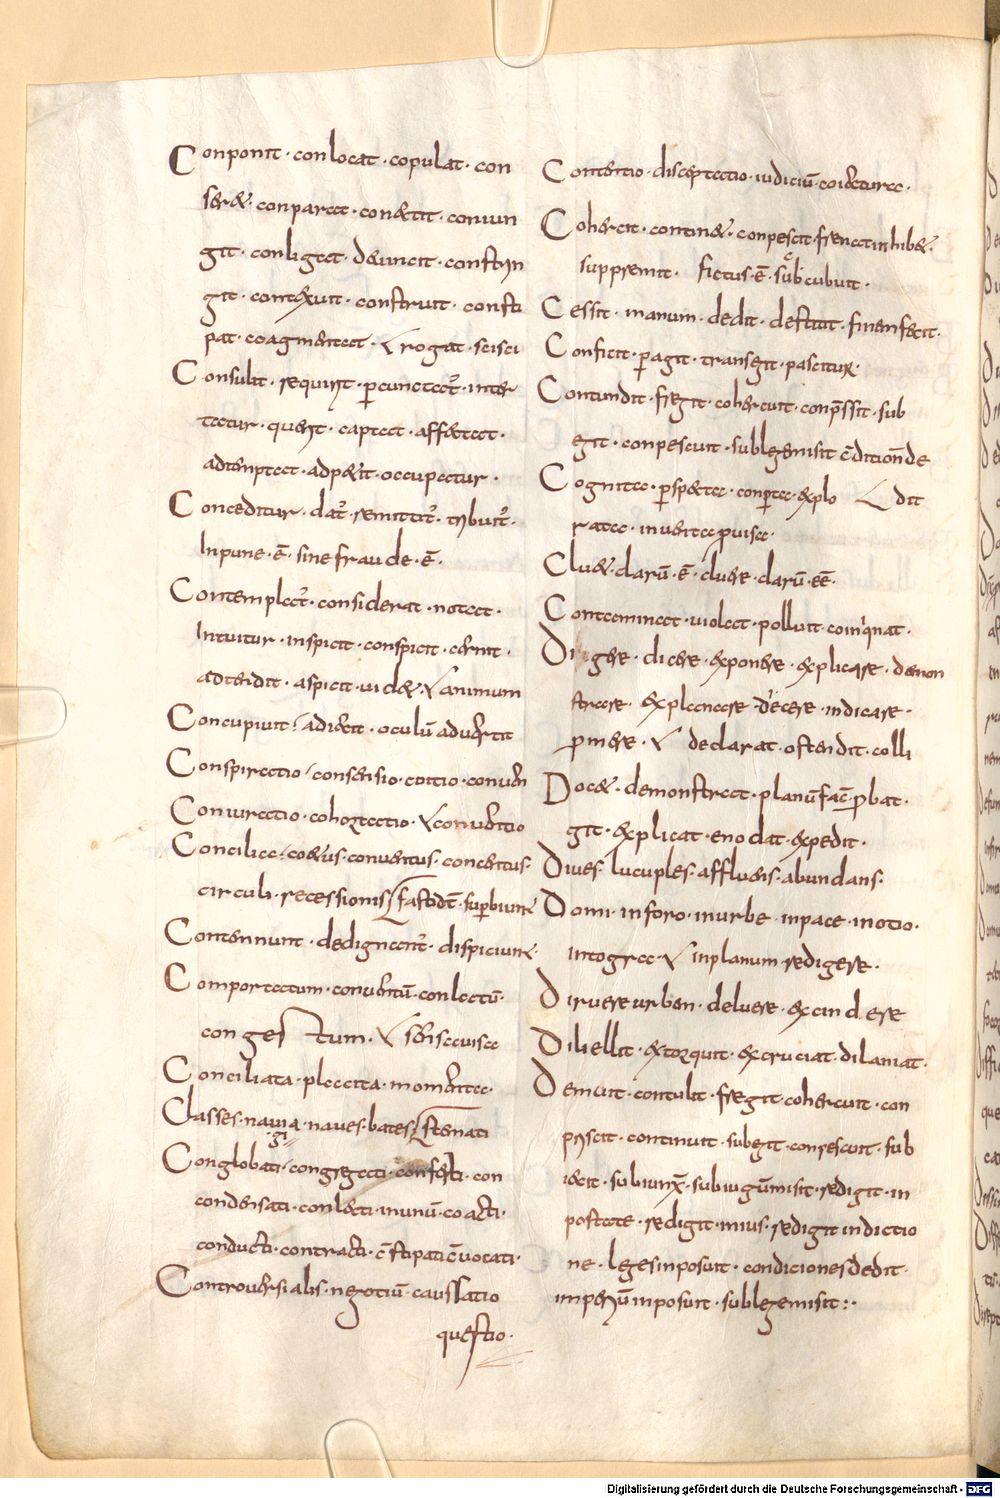 Conponit · conlocat · copulat · con
ser& · conparat · con&tit · coniun
git · conligat · deuincit · constrin
git · contexuit · construit · consti
pat · coagmentat · rogat · scisci
Consulit · requirit · percunctat᷑ · inter
tatur · querit · captat · affectat ·
adtemptat · adpetit · occupatur ·
Conceditur · dat᷑ · remittit᷑ · tribuit᷑ ·
Inpune · ē · sine fraude · ē ·
Contemplat᷑ · considerat · notat ·
Intuitur · inspicit · conspicit · cernit ·
adtendit · aspicit · uid& · animum
Concupiuit · adiecit · oculū aduertit
Conspiratio · consensio · coitio · conuen
Coniuratio · cohortatio · conuentio
Concilia · coetus · conuentus · concentus ·
circuli · recessionis · superbiunt
Contemnunt · dedignant᷑ · dispiciunt ·
Comportatum · conuentū · conlatū ·
congestum ·
Conciliata · placita · momenta ·
Classes · nauia · naues · bates · sternati
gi
Conglobati · congregati · conferti · con
condensati · conlecti · inunū · coacti ·
conducti · contracti · c̄stipati c̄uocati ·
Controuersialis · negotiū · causlatio
questio ·
Contentio · disceptatio · iudiciū · coiectura ·
Cohercit · contin& · conpescit · frenat inhib& ·
suppremit · fictus · ē · subcubuit ·
Cessit · manum · dedit · destitit ·
Conficit · p̱agit · transegit · pascitur ·
Contundit · fregit · cohercuit · conp̄ssit · sub
egit · conpescuit · sublegemisit c̄ditionē de
Cognita · p̱specta · conperta · explo dit
rata · inuenta puisa ·
Clu& · clarū · ē · cluere · clarū · eē ·
Contaminat · uiolat · polluit · coinquinat ·
Digere · dicere · exponere · explicare · demon
strare · explanare · docere · indicare ·
p̱mere · declarat · ostendit · colli
Doc& · demonstrat · planū fac̄ · probat ·
git · explicat · enodat · expedit ·
Diues · lucuples · affluens · abundans ·
Domi · inforo · inurbe · inpace · inotio ·
integra · inplanum · redigere ·
Diruere urbem · deluere · excindere
Diuellit · extorquit · excruciat · dilaniat ·
Demuit · contulit · fregit · cohercuit · con
pascit · continuit · subegit · conpescuit · sub
iecit · subiunx̄ · subiugūmisit · redigit · in
postate · redigit · inius · redigit indictio
ne · leges inposuit · condiciones dedit ·
imperiū inposuit · sublegemisit :·
Digitalisierung gefördert durch die Deutsche Forschungsgemeinschaft - DFG